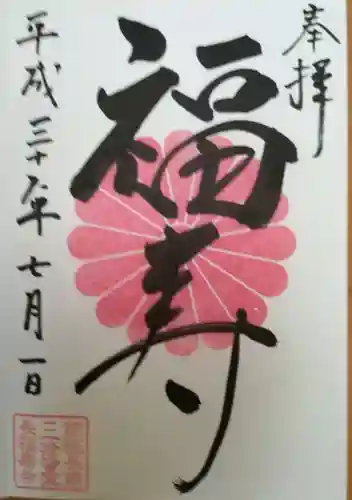 奉拝
福寿
平成三十年七月一日